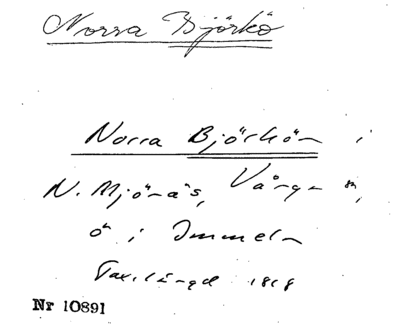 Norra Björkö
Norra Björkön i
N. Mjönäs, Vånga sn,
ö i Immeln
Taxlängd 1818
Nr 10891